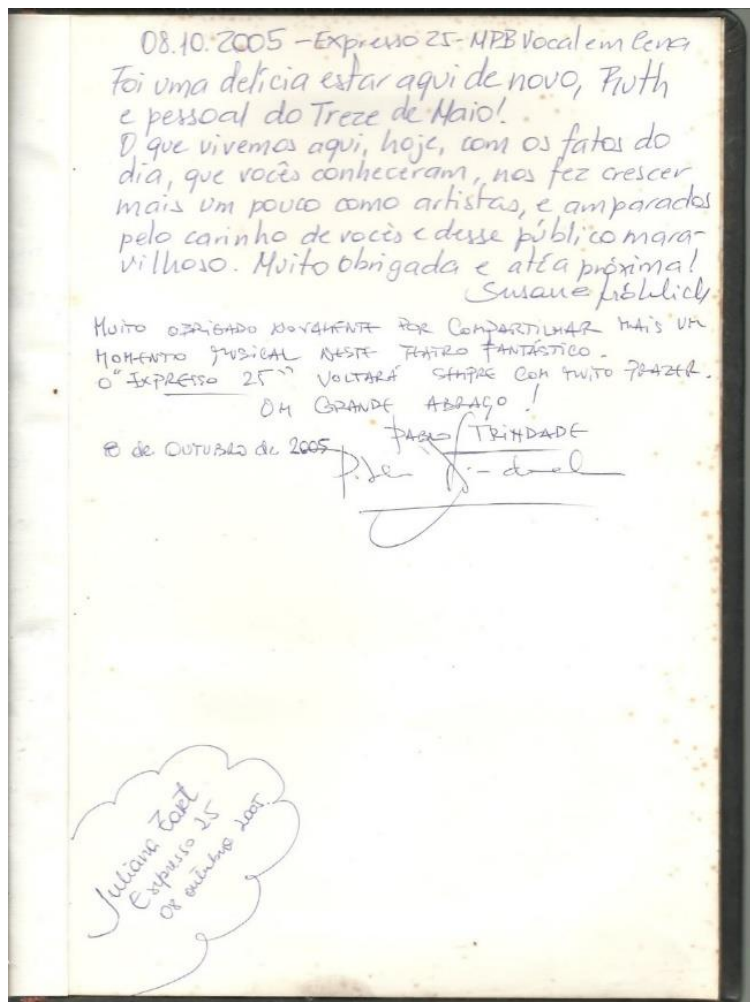 08.10.2005 - Expresso 25 - MPB Vocal em Cena
Foi uma delícia estar aqui de novo, Ruth
e pessoal do Treze de Maio!
O que vivemos aqui, hoje, com os fatos do
dia, que vocês conheceram, nos fez crescer
mais um pouco como artistas, e amparados
pelo carinho de vocês e desse público mara-
vilhoso. Muito obrigada e até a próxima!
Susane
MUITO OBRIGADO NOVAMENTE POR COMPARTILHAR MAIS UM
MOMENTO MUSICAL NESTE TEATRO FANTÁSTICO.
O "EXPRESSO 25" VOLTARÁ SEMPRE COM MUITO PRAZER.
UM GRANDE ABRAÇO!
PABLO TRINDADE
8 de OUTUBRO de 2005
Juliana
Expresso 25
08 outubro 2005